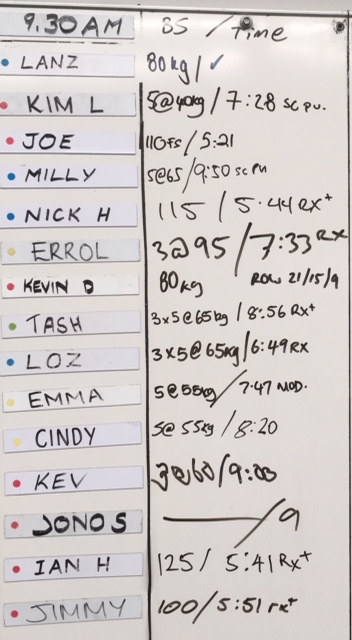 9.30AM BS / Time
LANZ 80kg / ✓
KIM L 5@40kg / 7:28 sc pu.
JOE 110FS / 5:21
MILLY 5@65 / 9:50 sc PU
NICK H 115 / 5.44 RX+
ERROL 3@95 / 7:33 RX
KEVIN D 80kg ROW 21/15/9
TASH 3x5@65kg / 8:56 Rx+
LOZ 3x5@65kg / 6:49 RX
EMMA 5@55kg / 7:47 MOD.
CINDY 5@ 55kg / 8:20
KEV 3@60 / 9:03
JONO S — / 9
IAN H 125 / 5:41 Rx+
JIMMY 100 / 5:51 rx+